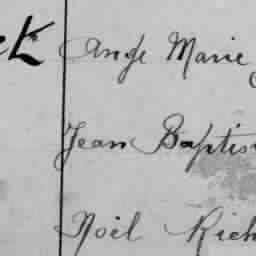 Ange Marie
Jean Baptis
Noël Rich